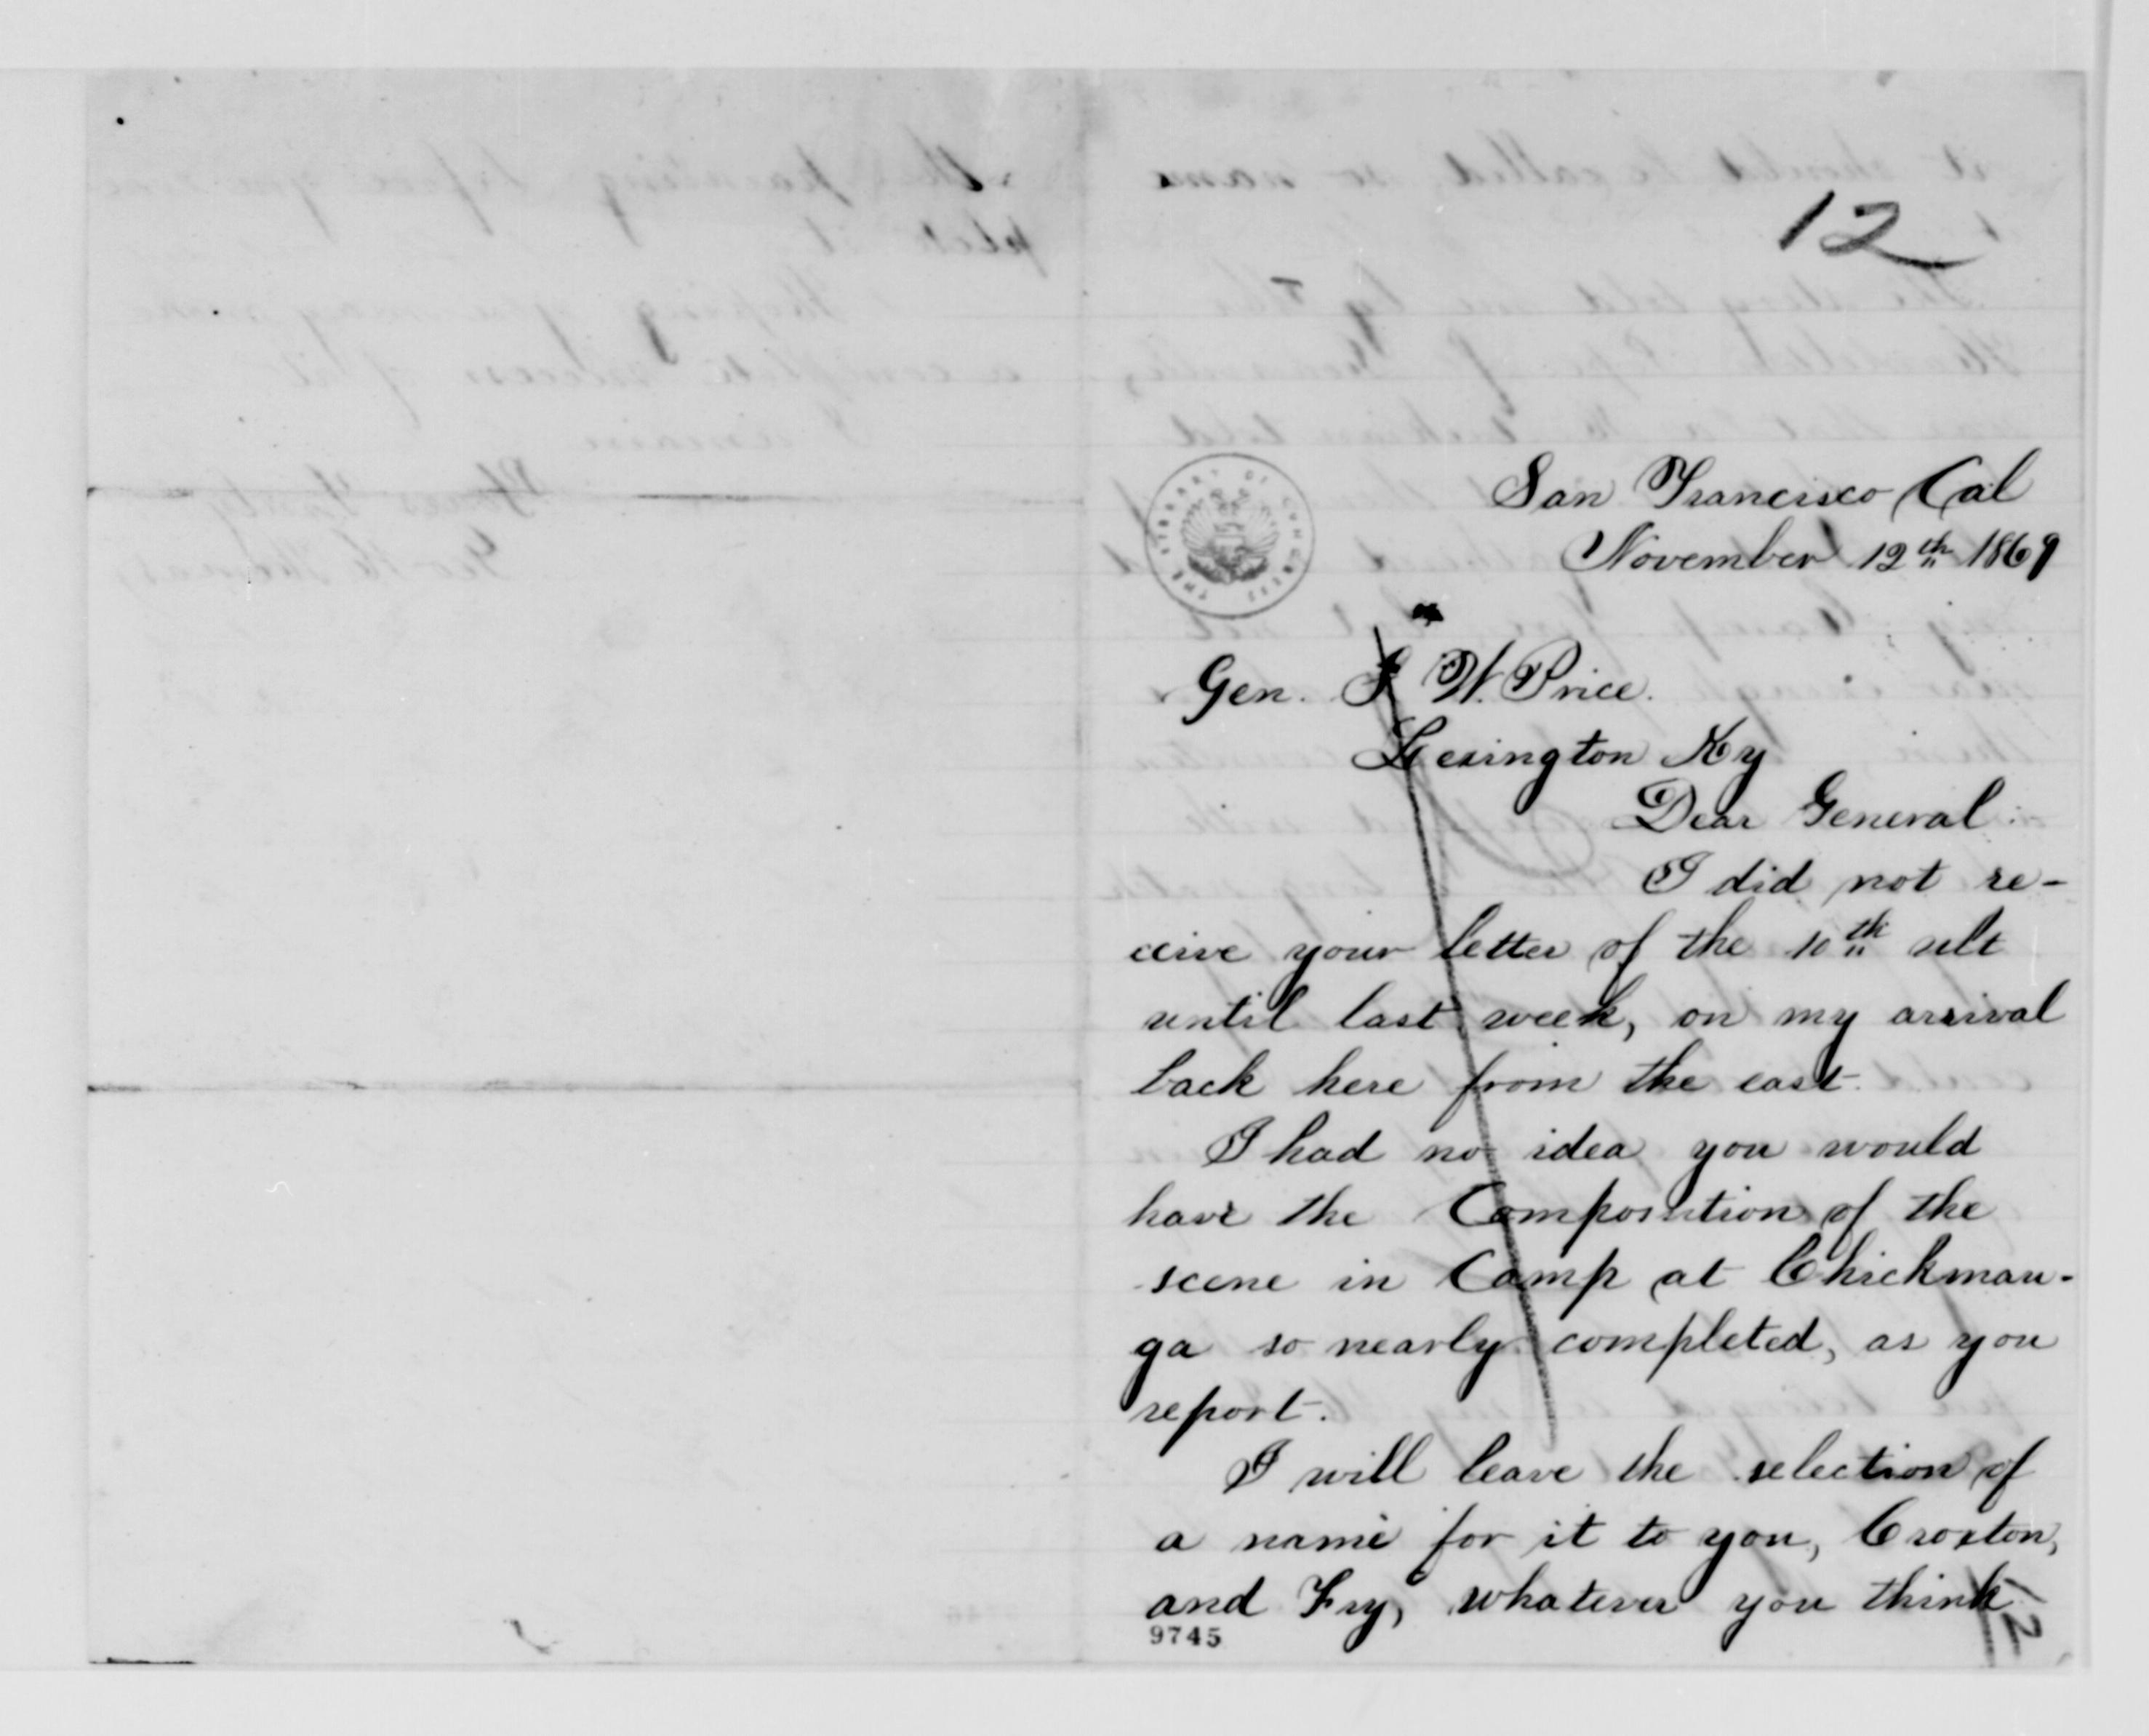 12
San Francisco Cal
November 12th 1869
THE LIBRARY OF CONGRESS
Gen. S W. Price.
Lexington Ky
Dear General:
I did not re-
ceive your letter of the 10th ult
until last week, on my arrival
back here from the east.
I had no idea you would
have the Composition of the
scene in Camp at Chickmau-
ga so nearly completed, as you
report.
I will leave the selection of
a name for it to you, Croxton,
and Fry, whatever you think
9745
12